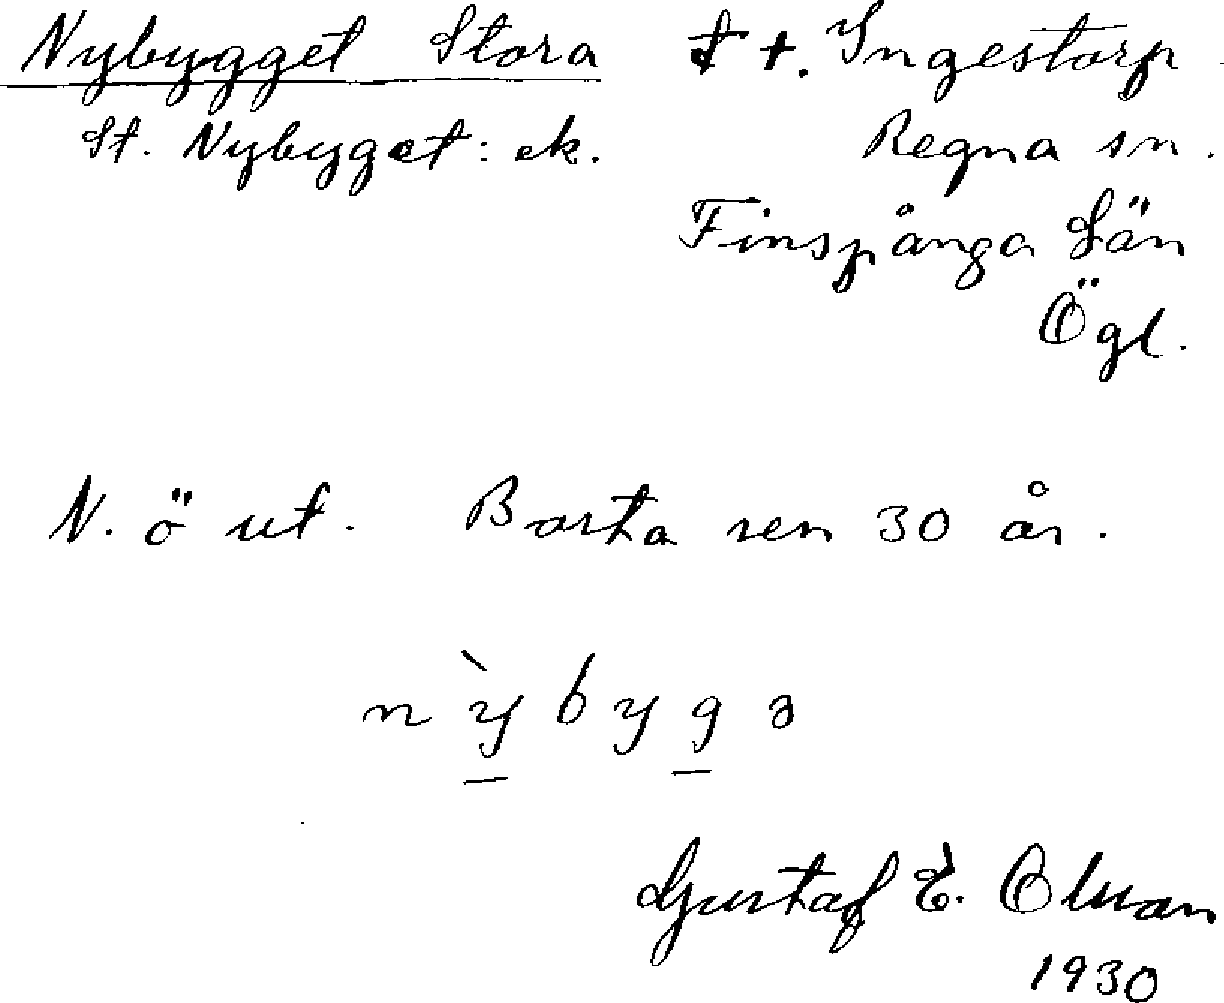 Nybygget Stora t t. Ingestorp
St. Nybyget: ek. Regna sn.
Finspånga Län
Ögl.
N. ö ut. Borta sen 30 år.
n ỳ b y g ɜ
Gustaf E. Olson
1930